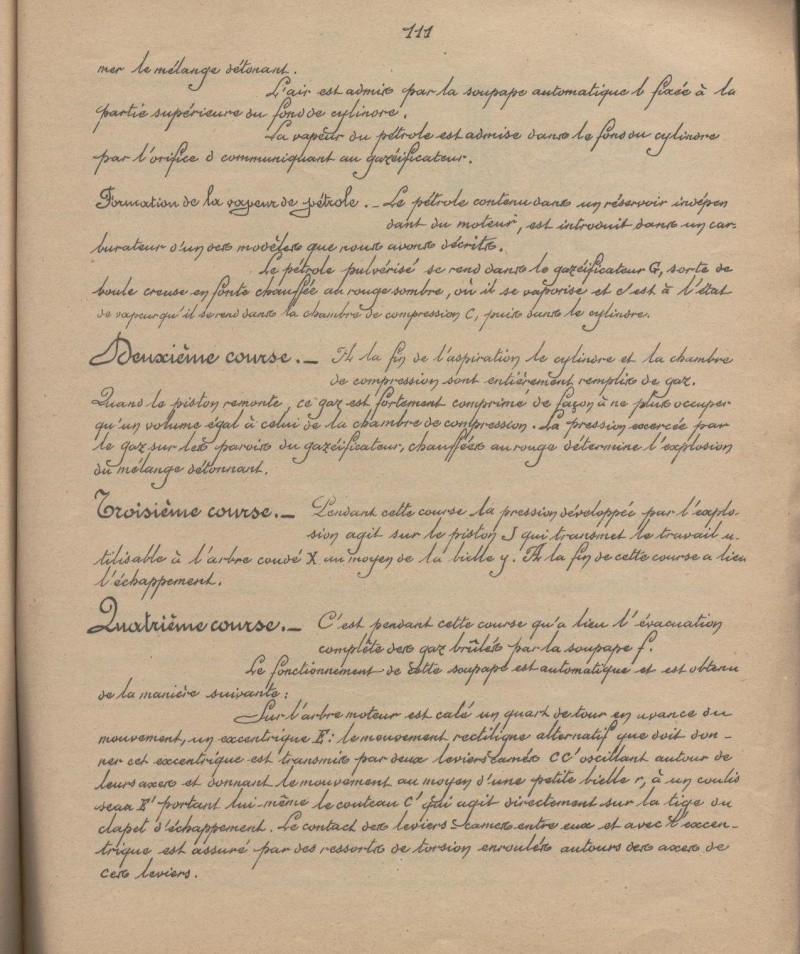 111
mer le mélange détonant.
L'air est admis par la soupape automatique b fixée à la
partie supérieure du fond de cylindre.
La vapeur du pétrole est admise dans le fond du cylindre
par l'orifice d communiquant au gazéificateur.
Formation de la vapeur de pétrole. _ Le pétrole contenu dans un réservoir indépen
dant du moteur, est introduit dans un car-
burateur d'un des modèles que nous avons décrits.
Le pétrole pulvérisé se rend dans le gazéificateur G, sorte de
boule creuse en fonte chauffée au rouge sombre, où il se vaporise et c'est à l'état
de vapeur qu'il se rend dans la chambre de compression C, puis dans le cylindre.
Deuxième course. _ A la fin de l'aspiration le cylindre et la chambre
de compression sont entièrement remplis de gaz.
Quand le piston remonte, ce gaz est fortement comprimé de façon à ne plus occuper
qu'un volume égal à celui de la chambre de compression. La pression exercée par
le gaz sur les parois du gazéificateur, chauffées au rouge détermine l'explosion
du mélange détonnant.
Troisième course. _ Pendant cette course la pression développée par l'explo-
sion agit sur le piston J qui transmet le travail u-
tilisable à l'arbre coudé X au moyen de la bielle y. A la fin de cette course a lieu
l'échappement.
Quatrième course. _ C'est pendant cette course qu'a lieu l'évacuation
complète des gaz brûlés par la soupape f.
Le fonctionnement de cette soupape est automatique et est obtenu
de la manière suivante :
Sur l'arbre moteur est calé un quart de tour en avance du
mouvement, un excentrique E : le mouvement rectiligne alternatif que doit don-
ner cet excentrique est transmis par deux leviers-cames CC' oscillant autour de
leurs axes et donnant le mouvement au moyen d'une petite bielle r, à un coulis
seau E' portant lui-même le couteau C' qui agit directement sur la tige du
clapet d'échappement. Le contact des leviers-cames entre eux et avec l'excen-
trique est assuré par des ressorts de torsion enroulés autours des axes de
ces leviers.